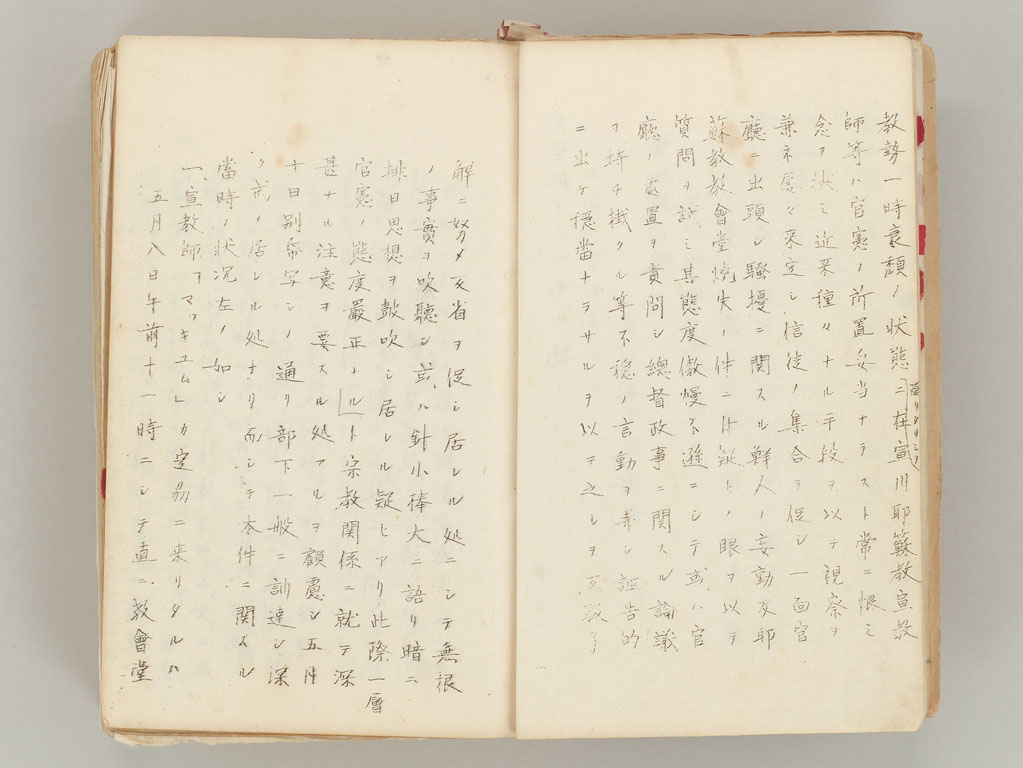 教勢一時衰頽ノ状態ニ在宣川耶蘇教宣教
師等ハ官憲ノ所置妥当ナラスト常ニ恨ミ
念ヲ狭ミ近来種々ナル手段ヲ以テ視察ヲ
兼ネ屡々来定シ信徒ノ集合ヲ促シ一面官
廳ニ出頭シ騒擾ニ関スル鮮人ノ妄動及耶
蘇教教會堂焼失ノ件ニ付疑ヒノ眼ヲ以テ
質問ヲ試ミ其態度傲慢不遜ニシテ或ハ官
廳ノ處置ヲ責問シ總督政事ニ関スル論議
ヲ持チ掛クル等不穏ノ言動ヲ弄シ誣告的
ニ出テ穏當ナラサルヲ以テ之レヲ
解ニ努メ反省ヲ促シ居レル処ニシテ無根
ノ事實ヲ吹聴シ或ハ針小棒大ニ語リ暗ニ
排日思想ヲ鼓吹シ居レル疑ヒアリ此際一層
官憲ノ態度嚴正トルト宗教関係ニ就テ深
甚ナル注意ヲ要スル処アルヲ顧慮シ五月
十日別帋写シノ通リ部下一般ニ訓達シ深
ク戒メ居レル処ナリ而シテ本件ニ関スル
當時ノ状况左ノ如シ
一、宣教師ヲマッキユムレカ定州ニ来リタルハ
五月八日午前十一時ニシテ直ニ教會堂